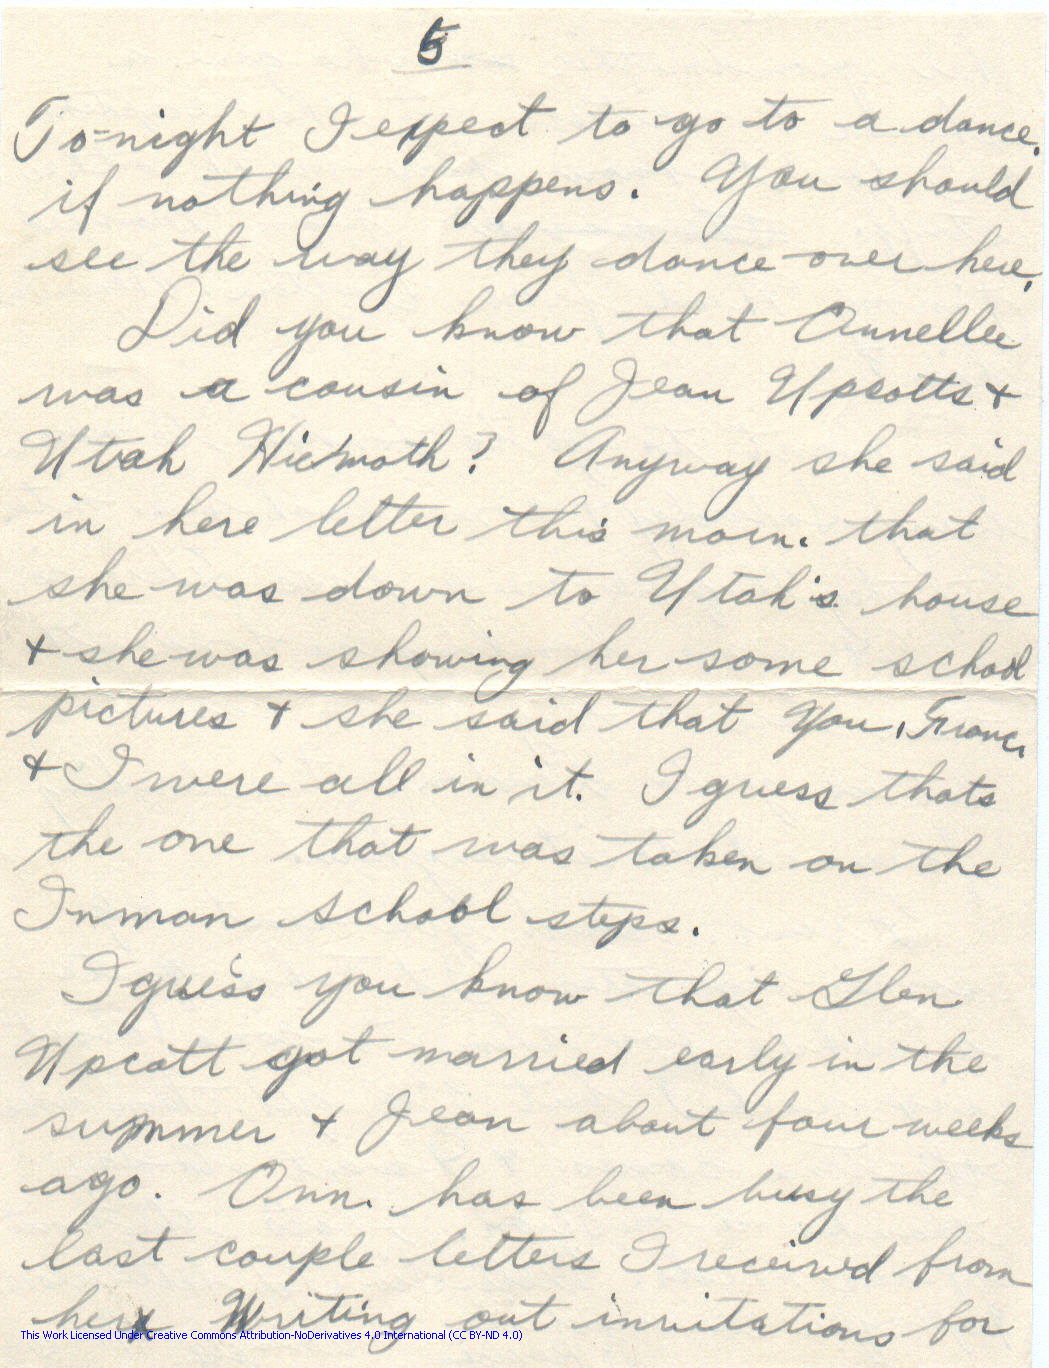 5
To-night I expect to go to a dance,
if nothing happens. You should
see the way they dance over here,
Did you know that Annellee
was a cousin of Jean Upcotts +
Utah Hicmoth? Anyway she said
in here letter this morn. that
she was down to Utah's house
+ she was showing her some school
pictures + she said that you, Franc,
+ I were all in it. I guess thats
the one that was taken on the
Inman school steps.
I guess you know that Glen
Upcott got married early in the
summer + Jean about four weeks
ago. Ann. has been busy the
last couple letters I received from
her Writing out invitations for
This Work Licensed Under Creative Commons Attribution-NoDerivatives 4.0 International (CC BY-ND 4.0)